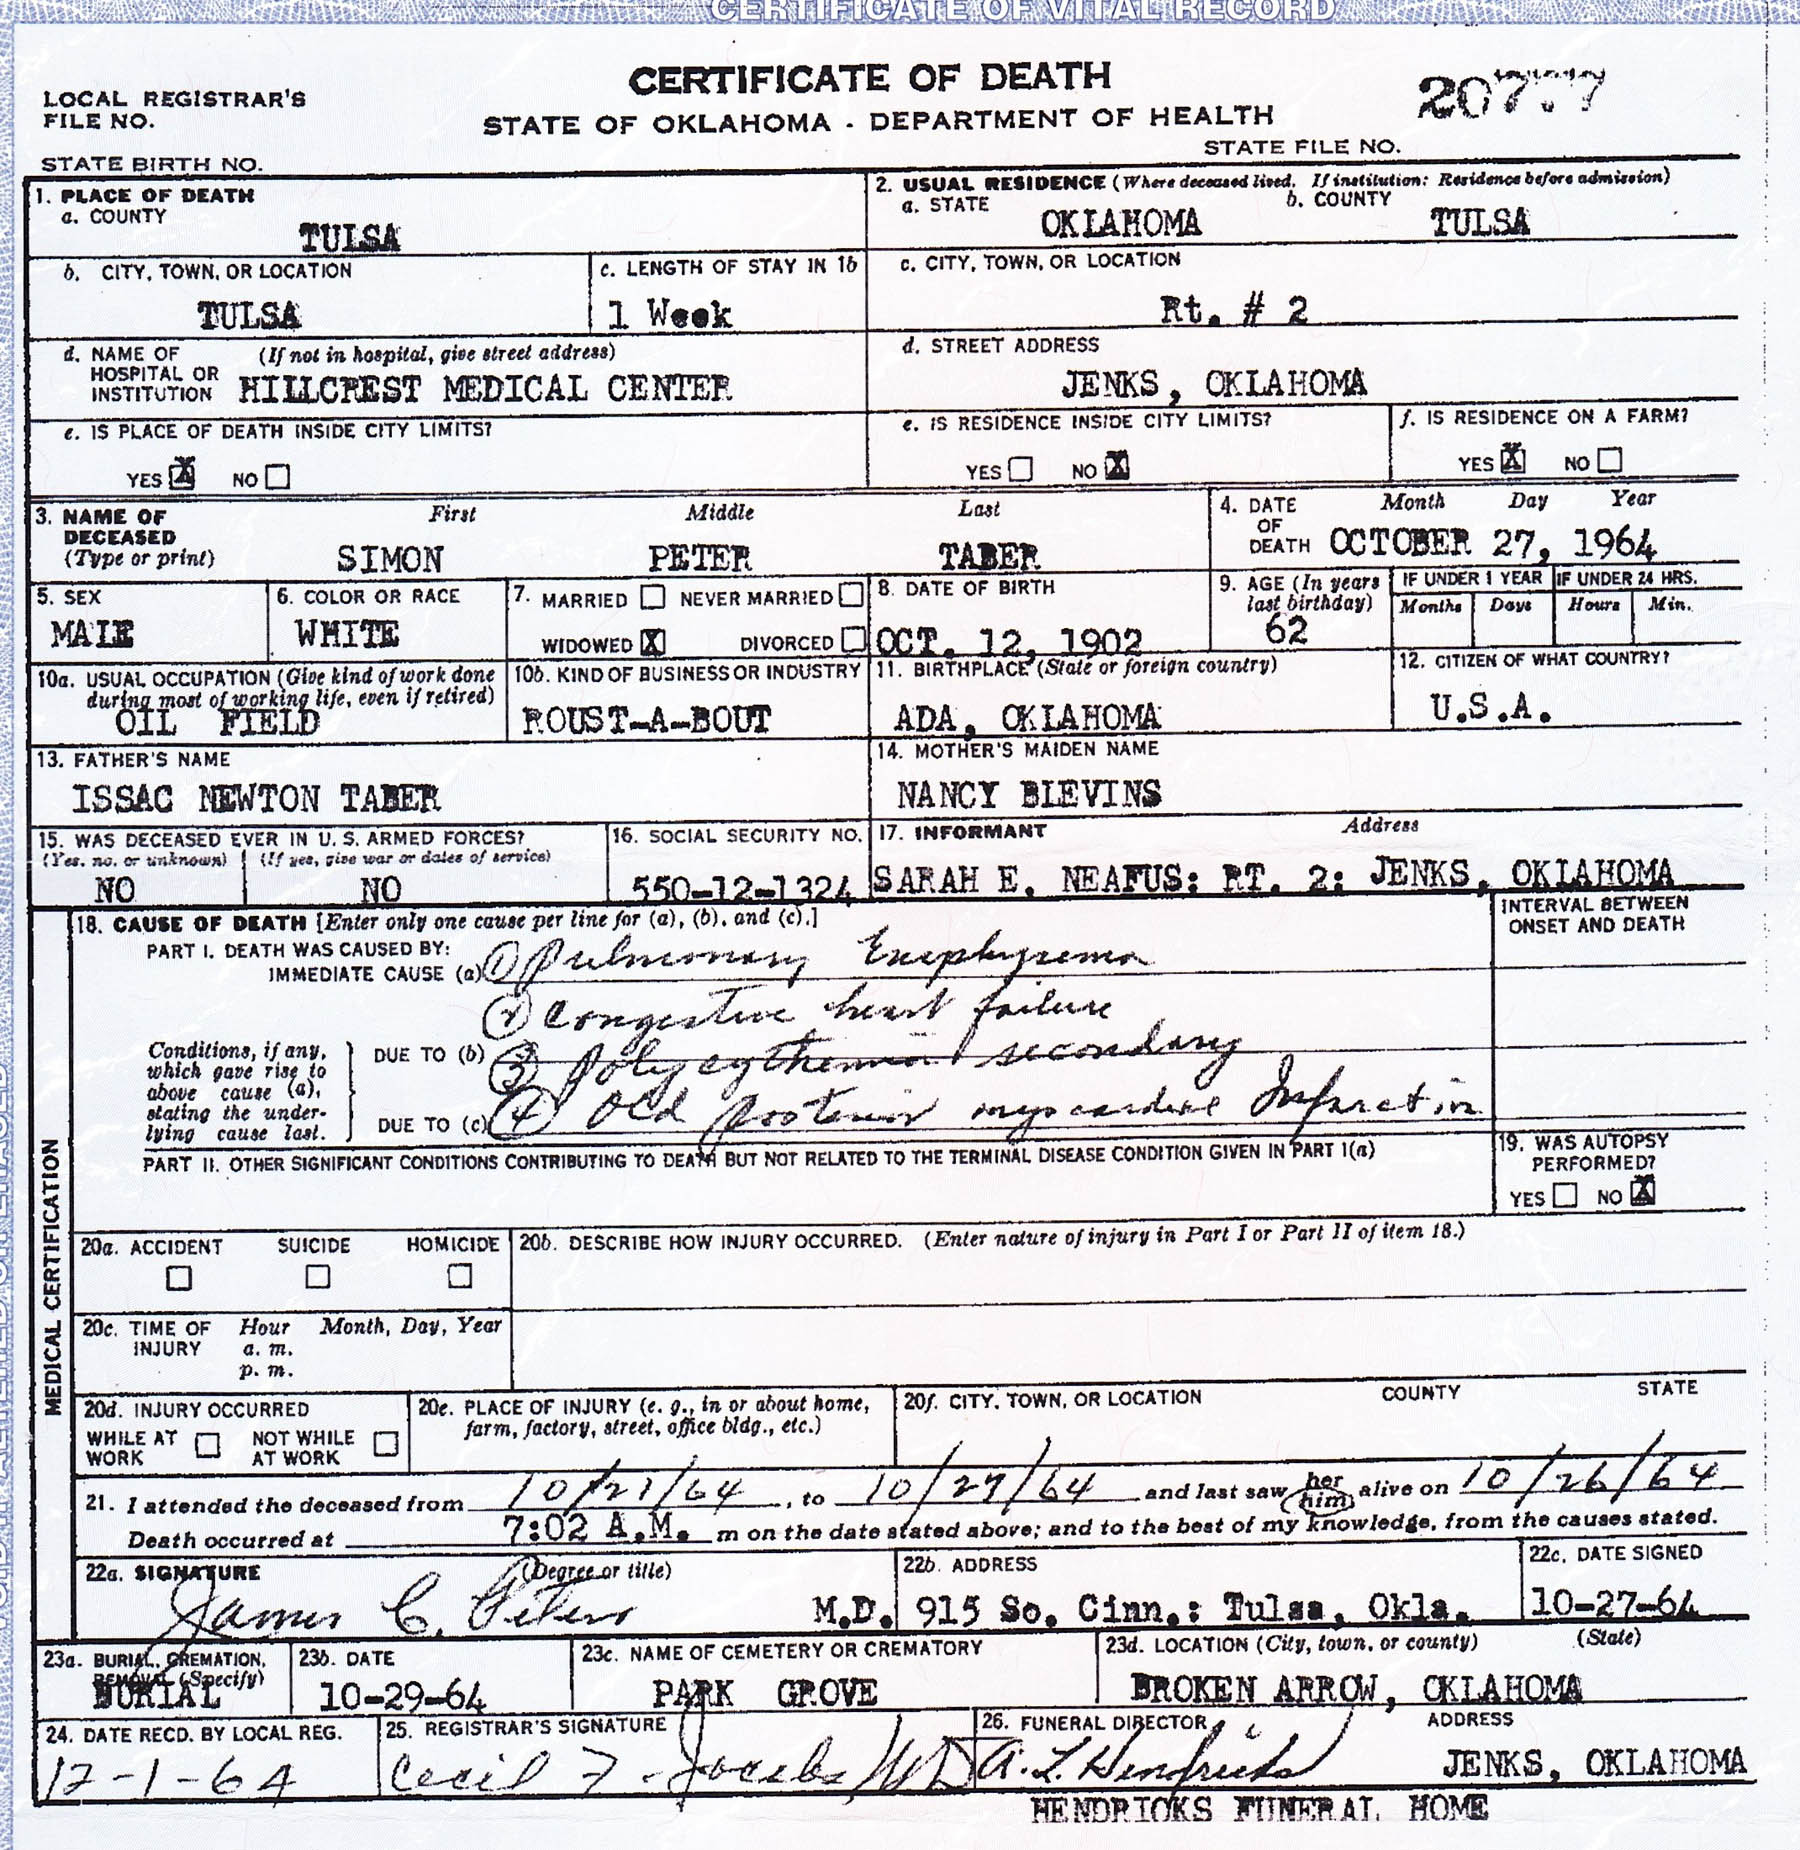 CERTIFICATE OF VITAL RECORD
CERTIFICATE OF DEATH
STATE OF OKLAHOMA - DEPARTMENT OF HEALTH
LOCAL REGISTRAR'S
FILE NO.
STATE FILE NO.
STATE BIRTH NO.
1. PLACE OF DEATH
a. COUNTY
TULSA
2. USUAL RESIDENCE (Where deceased lived. If institution: Residence before admission)
a. STATE OKLAHOMA b. COUNTY TULSA
b. CITY, TOWN, OR LOCATION
TULSA
c. LENGTH OF STAY IN 1b
1 Week
c. CITY, TOWN, OR LOCATION
Rt. # 2
d. NAME OF (If not in hospital, give street address)
HOSPITAL OR
INSTITUTION HILLCREST MEDICAL CENTER
d. STREET ADDRESS
JENKS, OKLAHOMA
e. IS PLACE OF DEATH INSIDE CITY LIMITS?
YES X NO
e. IS RESIDENCE INSIDE CITY LIMITS?
YES NO X
f. IS RESIDENCE ON A FARM?
YES X NO
3. NAME OF First Middle Last
DECEASED
(Type or print) SIMON PETER TABER
4. DATE Month Day Year
OF
DEATH OCTOBER 27, 1964
5. SEX
MALE
6. COLOR OR RACE
WHITE
7. MARRIED NEVER MARRIED
WIDOWED X DIVORCED
8. DATE OF BIRTH
OCT. 12, 1902
9. AGE (In years
last birthday)
62
IF UNDER 1 YEAR IF UNDER 24 HRS.
Months Days Hours Min.
10a. USUAL OCCUPATION (Give kind of work done
during most of working life, even if retired)
OIL FIELD
10b. KIND OF BUSINESS OR INDUSTRY
ROUST-A-BOUT
11. BIRTHPLACE (State or foreign country)
ADA, OKLAHOMA
12. CITIZEN OF WHAT COUNTRY?
U.S.A.
13. FATHER'S NAME
ISSAC NEWTON TABER
14. MOTHER'S MAIDEN NAME
NANCY BLEVINS
15. WAS DECEASED EVER IN U. S. ARMED FORCES?
(Yes, no, or unknown) (If yes, give war or dates of service)
NO NO
16. SOCIAL SECURITY NO.
550-12-1324
17. INFORMANT Address
SARAH E. NEAFUS: RT. 2: JENKS, OKLAHOMA
18. CAUSE OF DEATH [Enter only one cause per line for (a), (b), and (c).]
INTERVAL BETWEEN
ONSET AND DEATH
PART I. DEATH WAS CAUSED BY:
IMMEDIATE CAUSE (a) (1) Pulmonary Emphysema
(2) Congestive heart failure
Conditions, if any,
which gave rise to
above cause (a),
stating the under-
lying cause last.
DUE TO (b) (3) Polycythemia secondary
DUE TO (c) (4) Old posterior myocardial Infarction
PART II. OTHER SIGNIFICANT CONDITIONS CONTRIBUTING TO DEATH BUT NOT RELATED TO THE TERMINAL DISEASE CONDITION GIVEN IN PART I(a)
19. WAS AUTOPSY
PERFORMED?
YES NO X
MEDICAL CERTIFICATION
20a. ACCIDENT SUICIDE HOMICIDE
20b. DESCRIBE HOW INJURY OCCURRED. (Enter nature of injury in Part I or Part II of item 18.)
20c. TIME OF Hour Month, Day, Year
INJURY a. m.
p. m.
20d. INJURY OCCURRED
WHILE AT NOT WHILE
WORK AT WORK
20e. PLACE OF INJURY (e. g., in or about home,
farm, factory, street, office bldg., etc.)
20f. CITY, TOWN, OR LOCATION COUNTY STATE
21. I attended the deceased from 10/21/64, to 10/27/64 and last saw her him alive on 10/26/64
Death occurred at 7:02 A.M. m on the date stated above; and to the best of my knowledge, from the causes stated.
22a. SIGNATURE (Degree or title)
James C. Peters M.D.
22b. ADDRESS
915 So. Cinn.: Tulsa, Okla.
22c. DATE SIGNED
10-27-64
23a. BURIAL, CREMATION,
REMOVAL (Specify)
BURIAL
23b. DATE
10-29-64
23c. NAME OF CEMETERY OR CREMATORY
PARK GROVE
23d. LOCATION (City, town, or county) (State)
BROKEN ARROW, OKLAHOMA
24. DATE RECD. BY LOCAL REG.
12-1-64
25. REGISTRAR'S SIGNATURE
Cecil F. Jacobs MD
26. FUNERAL DIRECTOR ADDRESS
A. L. Hendricks JENKS, OKLAHOMA
HENDRICKS FUNERAL HOME